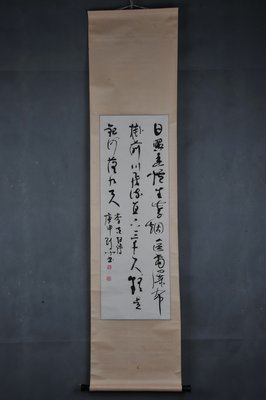 日照香炉生紫烟遥看瀑布
挂前川飞流直下三千尺疑是
银河落九天
李白诗
庚申